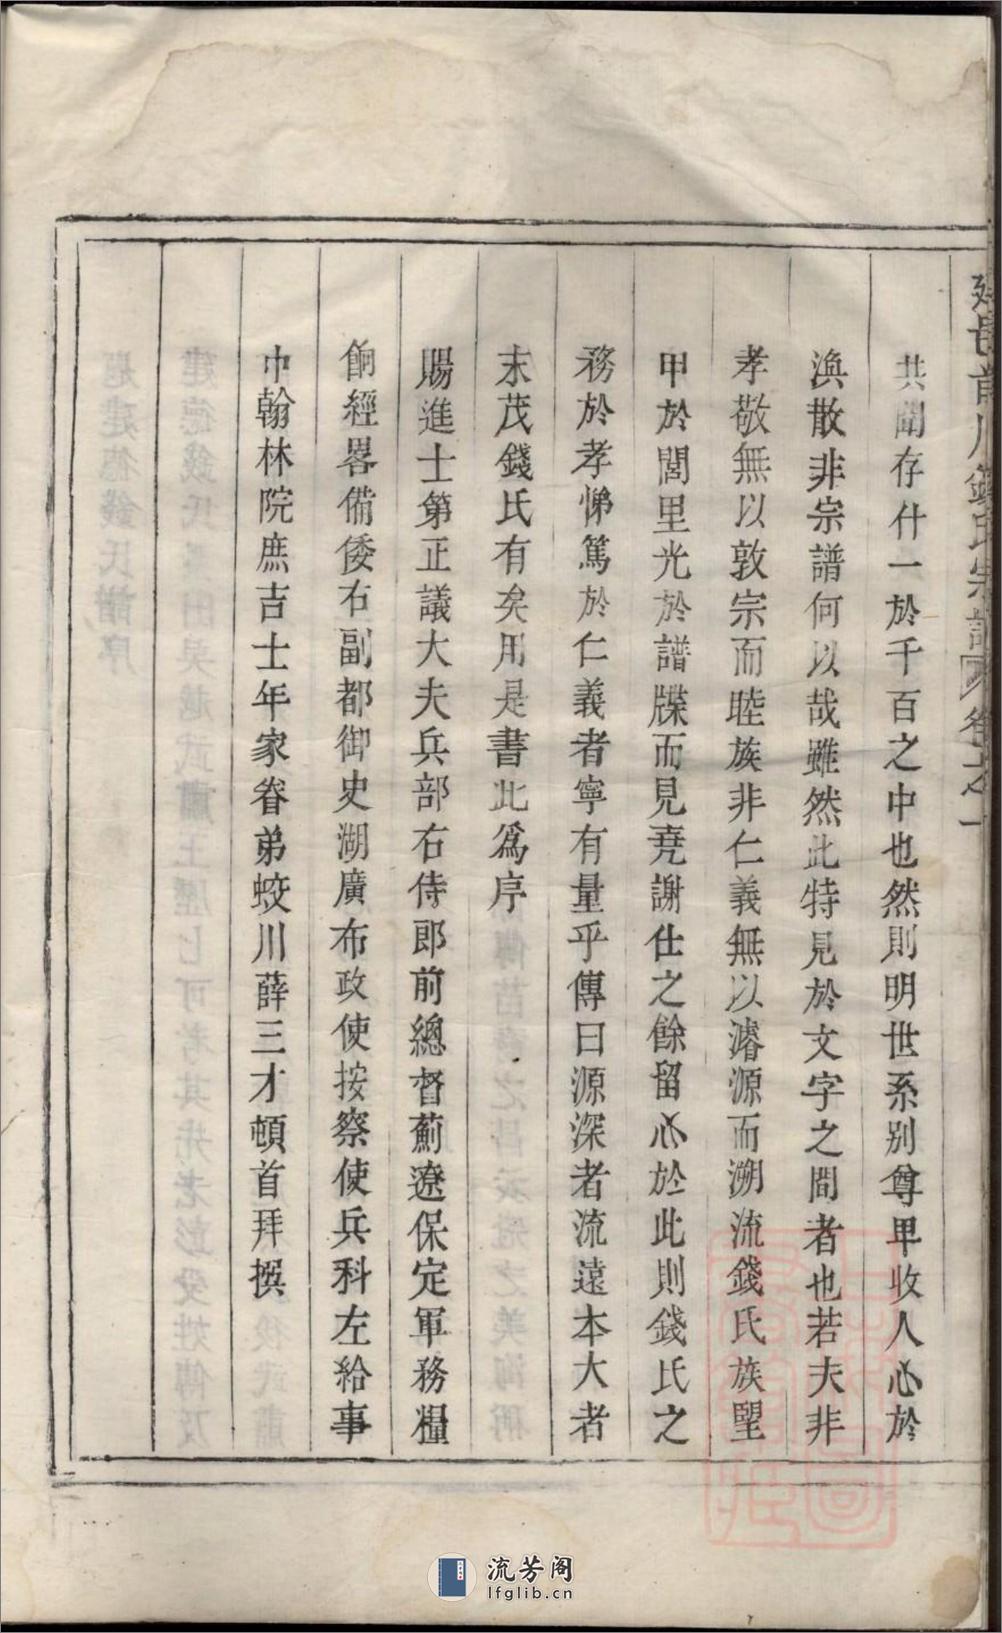 共聞存什一於千百之中也然則明世系别尊卑收人心於
渙散非宗譜何以哉雖然此特見於文字之間者也若夫非
孝敬無以敦宗而睦族非仁義無以濬源而溯流錢氏族望
甲於閭里光於譜牒而見尭謝仕之餘留心於此則錢氏之
務於孝悌篤於仁義者寧有量乎傳曰源深者流遠本大者
末茂錢氏有矣用是書此爲序
賜進士第正議大夫兵部右侍郎前總督薊遼保定軍務糧
餉經畧備倭右副都御史湖廣布政使按察使兵科左給事
中翰林院庶吉士年家眷弟蛟川薛三才頓首拜撰
流芳阁
lfglib.cn